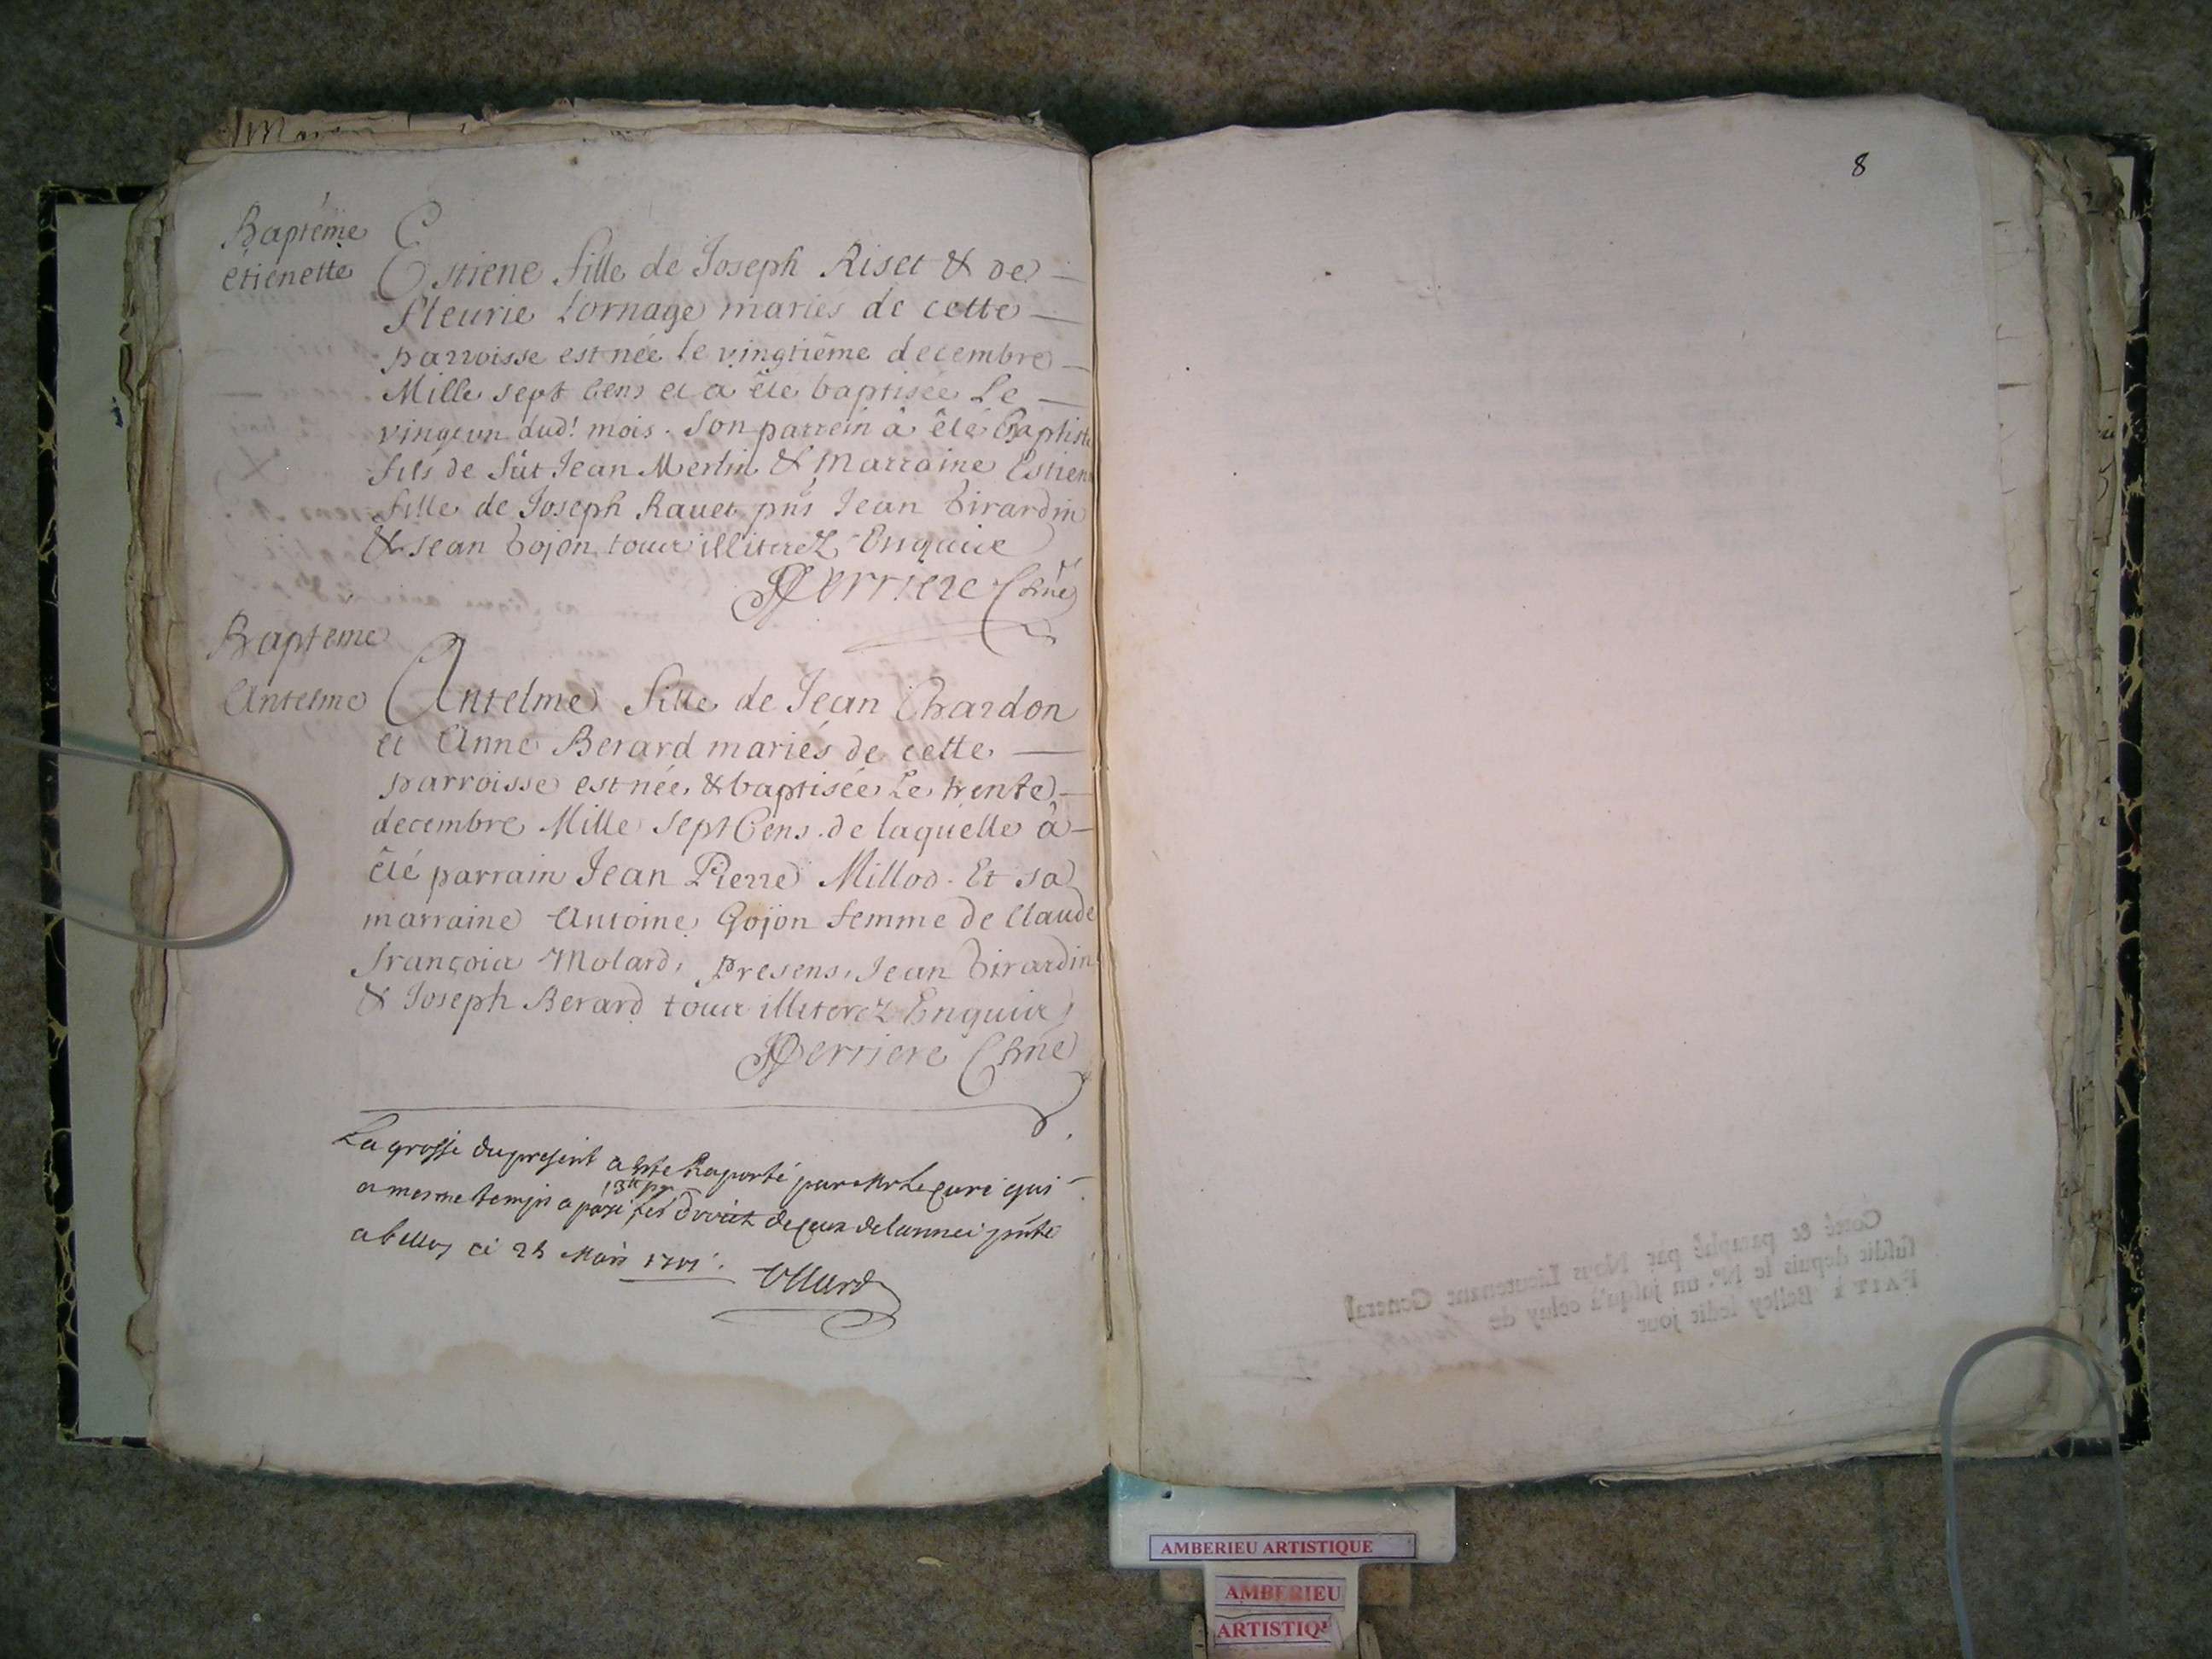 Baptéme
étiénette
Estiene fille de Joseph Riset & de
fleurie Lornage mariés de cette
parroisse est née le vingtiéme decembre
Mille sept Cens et a été baptisée Le
vingt un dud! mois. Son parrein â été Baptiste
fils de fût Jean Merlin & Marraine Estien
fille de Joseph Ravet pns Jean Girardin
& Jean Gojon tous illiterez Enquis
Perriere
Bapteme
Antelme
Antelme fille de Jean Chardon
et Anne Berard mariés de cette
parroisse est née & baptisée Le trente
decembre Mille Sept Cens. de laquelle â
été parrain Jean Pierre Millod. Et sa
marraine Antoine Gojon femme de Claude
françois Molard, Presens, Jean Girardin
& Joseph Berard tous illiterez Enquis
Perriere
La grosse du present a este Raporté par Mr Le curé qui
a mesme temps a payé les droits de ceux de lannee pnte
a belley ce 28 Mars 1701.
8
Cotté & paraphé par Nous Lieutenant General
susdit depuis le No. un jusqu'à celuy de
FAIT à Belley ledit jour
AMBERIEU ARTISTIQUE
AMBERIEU
ARTISTIQ